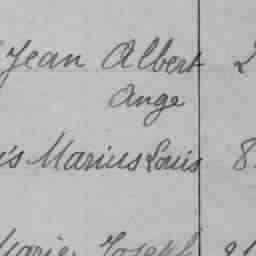 Jean Albert 2
Ange
is Marius Louis 8
Marie Joseph 21